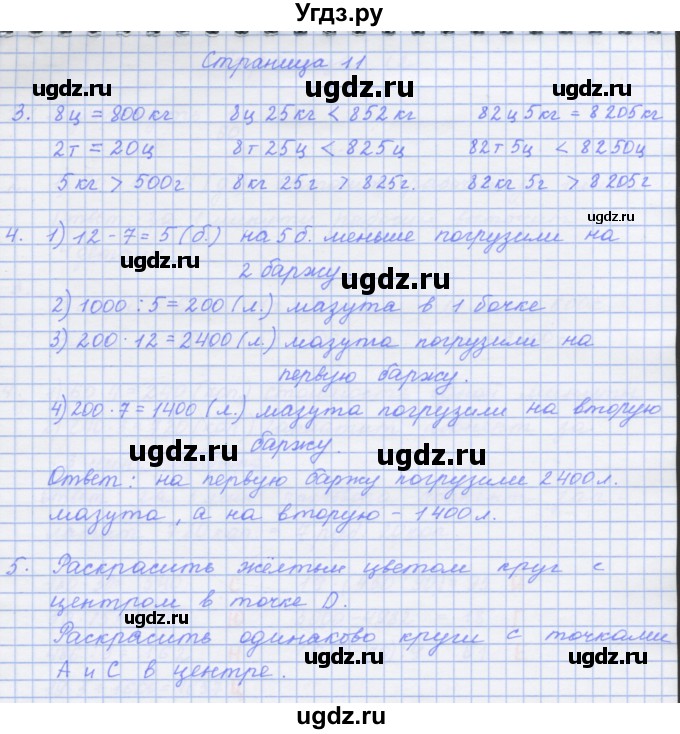 Угдз.ру
Страница 11
ugdz.ru ugdz.ru
3. 8ц = 800кг 8ц 25кг < 852кг 82ц 5кг = 8205кг
ugdz.ru ugdz.ru ugdz.ru
2т = 20ц 8т 25ц < 825ц 82т 5ц < 8250ц
5кг > 500г 8кг 25г > 825г. 82кг 5г > 8205г
ugdz.ru
4. 1) 12 - 7 = 5 (б.) на 5 б. меньше погрузили на
ugdz.ru
2 баржу
ugdz.ru
2) 1000 : 5 = 200 (л.) мазута в 1 бочке
3) 200 · 12 = 2400 (л.) мазута погрузили на
ugdz.ru ugdz.ru ugdz.ru
первую баржу.
4) 200 · 7 = 1400 (л.) мазута погрузили на вторую
баржу.
ugdz.ru ugdz.ru
Ответ: на первую баржу погрузили 2400л.
мазута, а на вторую - 1400л.
ugdz.ru ugdz.ru
5. Раскрасить жёлтым цветом круг с
ugdz.ru
центром в точке D.
Раскрасить одинаково круги с точками
ugdz.ru ugdz.ru ugdz.ru
А и С в центре.
ugdz.ru